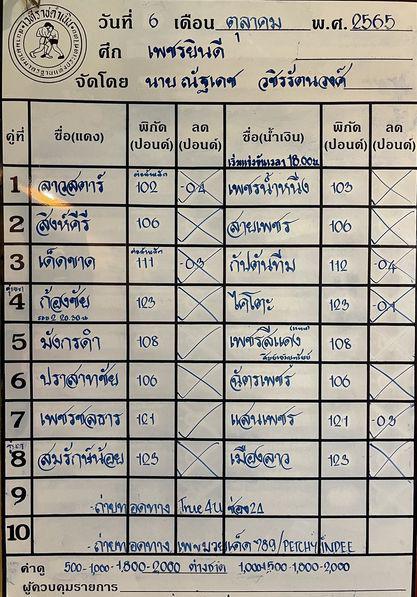 วันที่ 6 เดือน ตุลาคม พ.ศ. 2565
ศึก เพชรยินดี
จัดโดย นาย ณัฐเดช วชิรรัตนวงศ์
คู่ที่ ชื่อ(แดง) พิกัด (ปอนด์) ลด (ปอนด์) ชื่อ(น้ำเงิน) พิกัด (ปอนด์) ลด (ปอนด์)
เริ่มแข่งขันเวลา 18.00น
1 ลาวสตาร์ 102 -0.4 เพชรน้ำหนึ่ง 103
2 สิงห์คีรี 106 สายเพชร 106
3 เด็ดขาด 111 -0.3 กัปตันทีม 112 -0.4
4 ก้องชัย 123 ไคโตะ 123 -0.1
5 มังกรดำ 108 เพชรสีแดง 108
6 ปราสาทชัย 106 ฉัตรเพชร 106
7 เพชรชลธาร 121 แสนเพชร 121 -0.3
8 สมรักษ์น้อย 123 เมืองลาว 123
9 -ถ่ายทอดทาง True4U ช่อง 24
10 -ถ่ายทอดทาง เพจมวยเด็ด 789/PETCHYINDEE
ค่าดู 500-1,000-1,800-2000 ต่างชาติ 1,000-1,500-1,800-2,000
ผู้ควบคุมรายการ